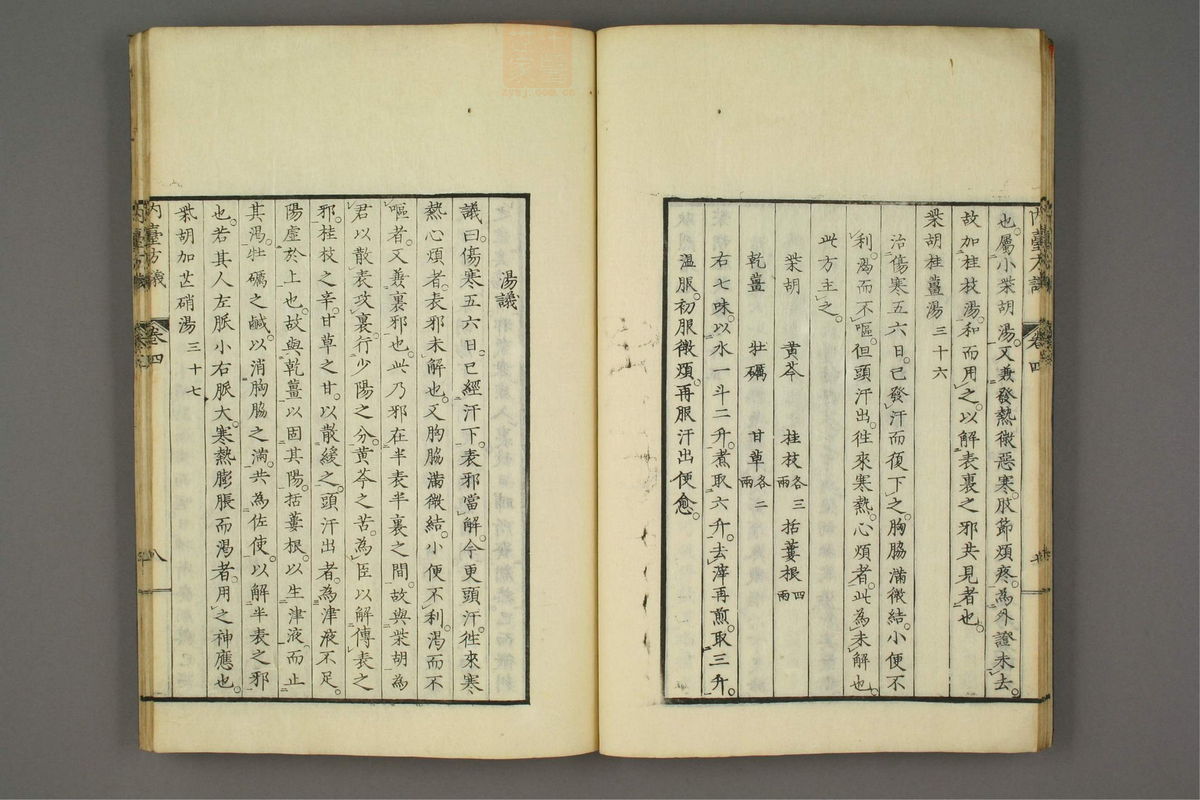 也。屬小柴胡湯。又兼發熱微惡寒。肢節煩疼。為外證未去。
故加桂枝湯。和而用之。以解表裏之邪共見者也。
柴胡桂薑湯 三十六
治傷寒五六日。已發汗而復下之。胸脇滿微結。小便不
利。渴而不嘔。但頭汗出。徃來寒熱。心煩者。此為未解也。
此方主之。
柴胡 黃芩 桂枝各三兩 括蔞根四兩
乾薑 牡礪 甘草各二兩
右七味。以水一斗二升。煮取六升。去滓再煎。取三升。
溫服。初服微煩。再服汗出便愈。
湯議
議曰。傷寒五六日。已經汗下。表邪當解。今更頭汗。徃來寒
熱心煩者。表邪未解也。又胸脇滿微結。小便不利。渴而不
嘔者。又兼裏邪也。此乃邪在半表半裏之間。故與柴胡為
君以散表攻裏行少陽之分。黃芩之苦。為臣以解傳表之
邪。桂枝之辛。甘草之甘。以散緩之。頭汗出者。為津液不足。
陽虛於上也。故與乾薑以固其陽。括蔞根。以生津液。而止
其渴。牡礪之鹹。以消胸脇之滿。共為佐使。以解半表之邪
也。若其人左脈小右脈大。寒熱膨脹而渴者。用之神應也。
柴胡加芒硝湯 三十七
內臺方議 卷四 八